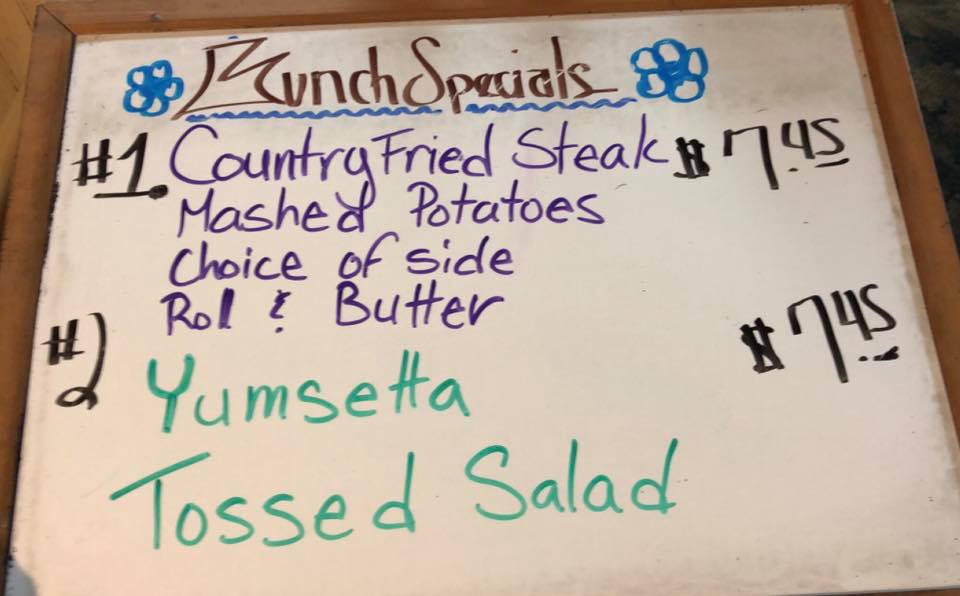 Lunch Specials
#1. Country Fried Steak $7.45
Mashed Potatoes
Choice of side
Roll & Butter
#2 $7.45
Yumsetta
Tossed Salad